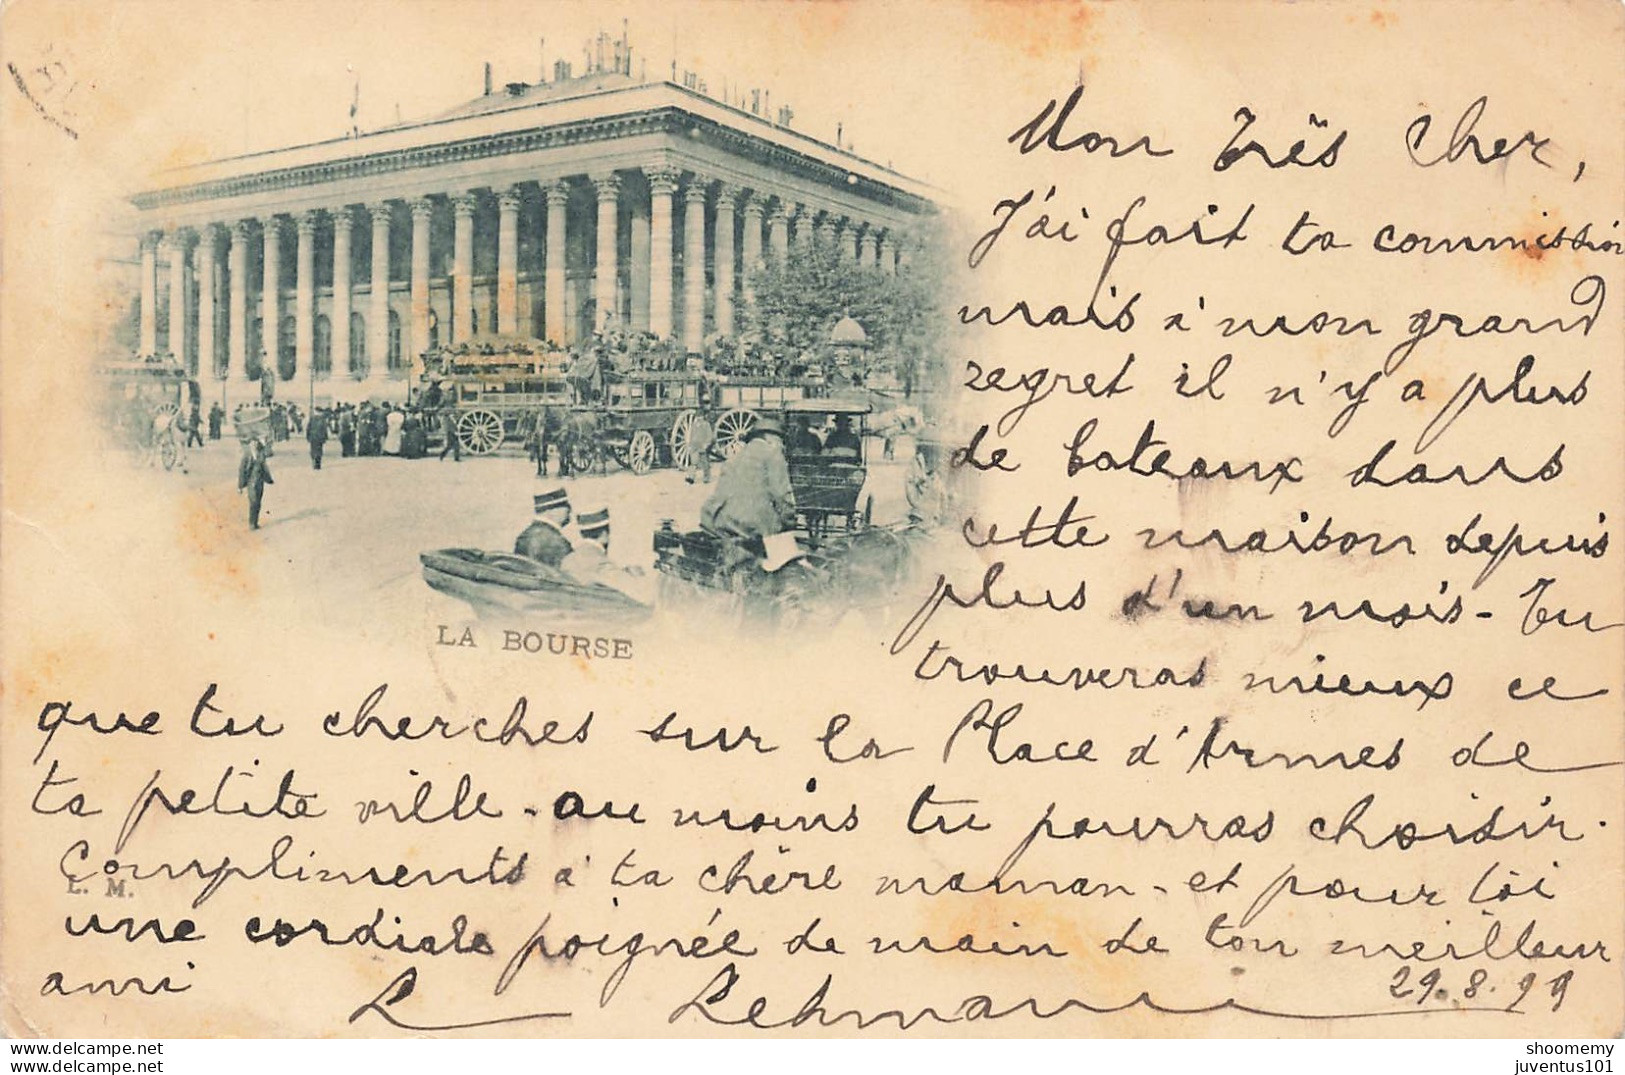 Mon très cher,
J'ai fait ta commission
mais à mon grand
regret il n'y a plus
de bateaux dans
cette maison depuis
plus d'un mois - Tu
trouveras mieux ce
LA BOURSE
que tu cherches sur la Place d'Armes de
ta petite ville - au moins tu pourras choisir.
Compliments à ta chère maman - et pour toi
L. M.
une cordiale poignée de main de ton meilleur
ami L Lehmann 29.8.99
delcampe.net
shoomemy
juventus101